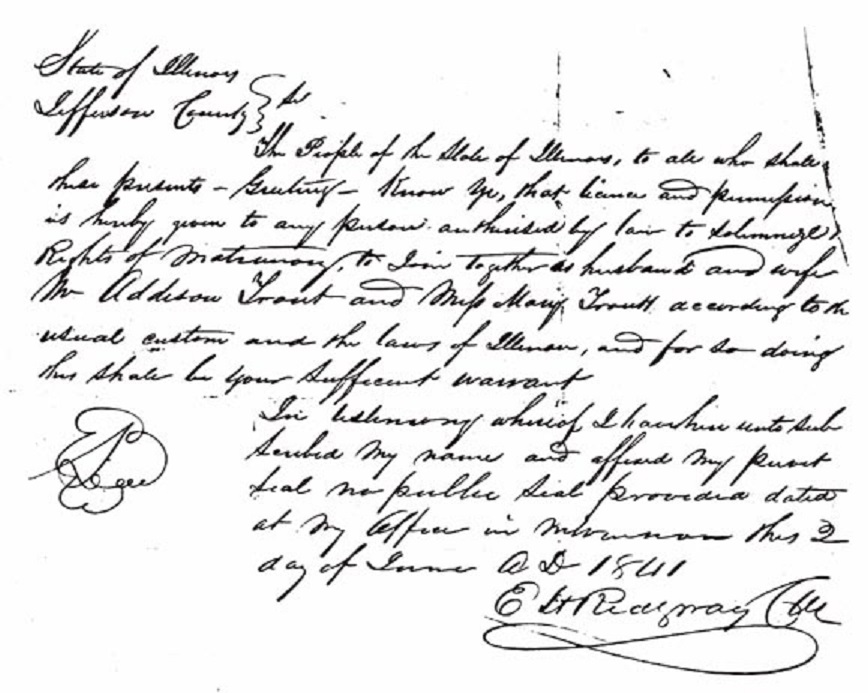 State of Illinois
Jefferson County } ss
The People of the State of Illinois, to all who shall
these presents - Greeting - Know Ye, that licence and permission
is hereby given to any person authorised by law to solemnize
Rights of Matrimony, to Join together as husband and wife
Mr Addison Trout and Miss Mary Troutt according to the
usual custom and the laws of Illinois, and for so doing
this shall be your sufficient warrant
In testimony whereof I have here unto sub
scribed my name and affixed my privit
seal no public seal provided dated
at my office in Mtvernon this 2
day of June A D 1841
E H Ridgway Clk